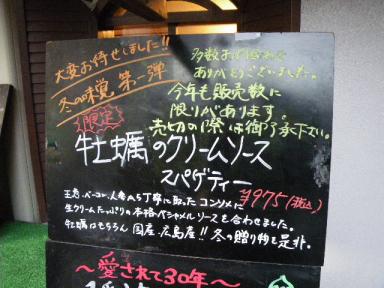 大変お待せしました!!
冬の味覚 第一弾
限定
多数お問い合わせ
ありがとうございました。
今年も販売数に
限りがあります。
売切の際は御了承下さい。
牡蠣のクリームソース
スパゲティー
¥975(税込)
玉ねぎ、ベーコン、人参から丁寧に取ったコンソメに
生クリームたっぷりの本格ベシャメルソースを合わせました。
牡蠣はもちろん国産、広島産!! 冬の贈り物を是非。
〜愛されて30年〜